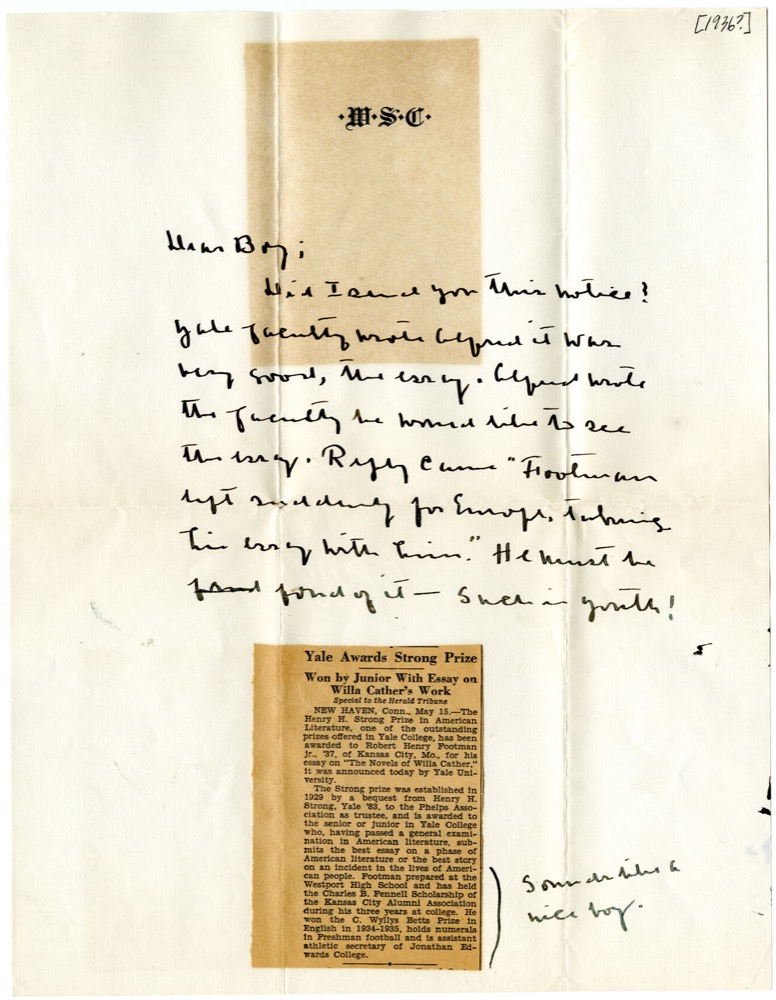 [1936?]
·W·S·C·
Dear Boy;
Did I send you this notice?
Yale faculty wrote Alfred it was
very good, the essay. Alfred wrote
the faculty he would like to see
the essay. Reply came "Footman
left suddenly for Europe, taking
his essay with him." He must be
fond of it — Such is youth!
Yale Awards Strong Prize
Won by Junior With Essay on
Willa Cather's Work
Special to the Herald Tribune
NEW HAVEN, Conn., May 15.—The
Henry H. Strong Prize in American
Literature, one of the outstanding
prizes offered in Yale College, has been
awarded to Robert Henry Footman
jr., '37, of Kansas City, Mo., for his
essay on "The Novels of Willa Cather,"
it was announced today by Yale Uni-
versity.
The Strong prize was established in
1929 by a bequest from Henry H.
Strong, Yale '83, to the Phelps Asso-
ciation as trustee, and is awarded to
the senior or junior in Yale College
who, having passed a general exami-
nation in American literature, sub-
mits the best essay on a phase of
American literature or the best story
on an incident in the lives of Ameri-
can people. Footman prepared at the
Westport High School and has held
the Charles B. Fennell Scholarship of
the Kansas City Alumni Association
during his three years at college. He
won the C. Wyllys Betts Prize in
English in 1934-1935, holds numerals
in Freshman football and is assistant
athletic secretary of Jonathan Ed-
wards College.
Sounds like a
nice boy.